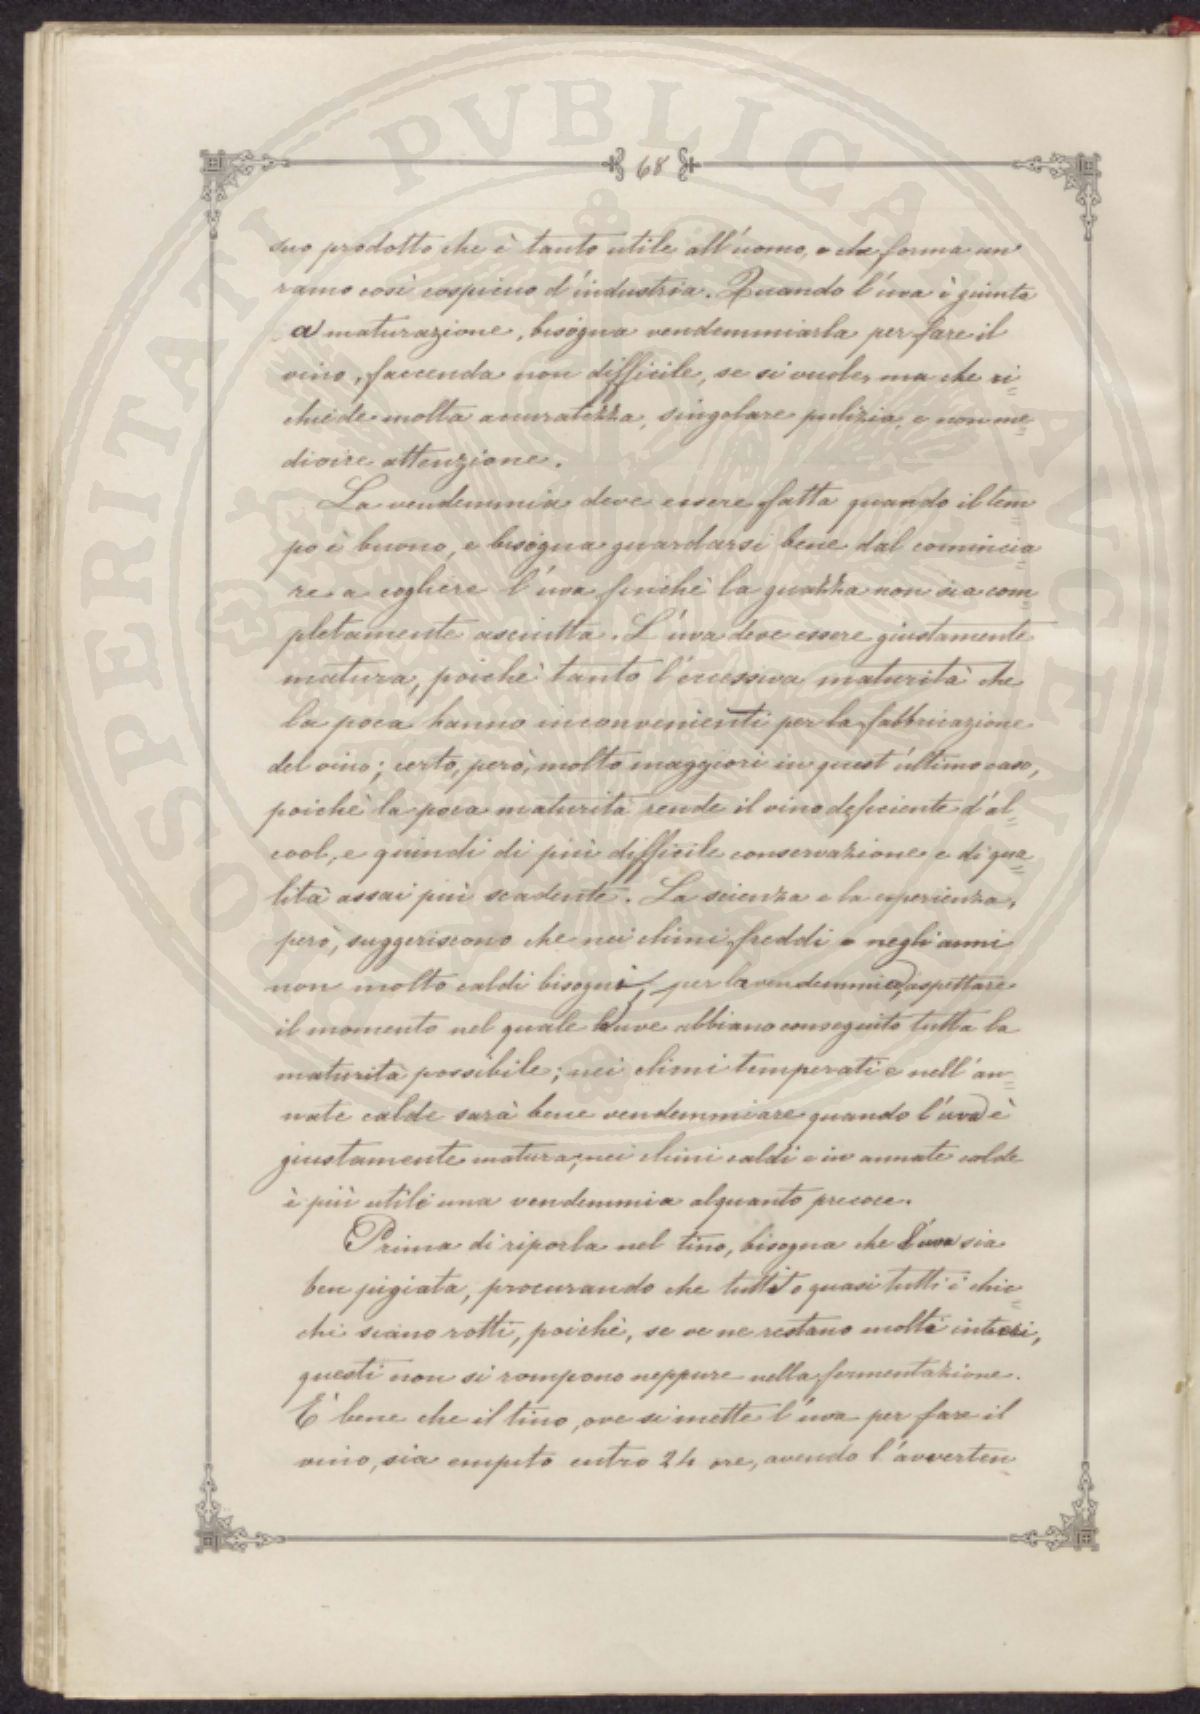 PROSPERITATI PVBLICAE AVGENDAE
68
suo prodotto che è tanto utile all'uomo, e che forma un
ramo così cospicuo d'industria. Quando l'uva è giunta
a maturazione, bisogna vendemmiarla per fare il
vino, faccenda non difficile, se si vuole, ma che ri=
chiede molta accuratezza, singolare pulizia, e non me=
diocre attenzione.
La vendemmia deve essere fatta quando il tem=
po è buono, e bisogna guardarsi bene dal comincia=
re a cogliere l'uva finchè la guazza non sia com=
pletamente asciutta. L'uva deve essere giustamente
matura, poichè tanto l'eccessiva maturità che
la poca hanno inconvenienti per la fabbricazione
del vino; certo, però, molto maggiori in quest'ultimo caso,
poichè la poca maturità rende il vino deficiente d'al=
cool, e quindi di più difficile conservazione e di qua=
lità assai più scadente. La scienza e la esperienza,
però, suggeriscono che nei climi freddi o negli anni
non molto caldi bisogni, per la vendemmia, aspettare
il momento nel quale le uve abbiano conseguito tutta la
maturità possibile; nei climi temperati e nell'an=
nate calde sarà bene vendemmiare quando l'uva è
giustamente matura; nei climi caldi e in annate calde
è più utile una vendemmia alquanto precoce.
Prima di riporla nel tino, bisogna che l'uva sia
ben pigiata, procurando che tutti o quasi tutti i chic=
chi siano rotti, poichè, se ve ne restano molti interi,
questi non si rompono neppure nella fermentazione.
E' bene che il tino, ove si mette l'uva per fare il
vino, sia empito entro 24 ore, avendo l'avverten